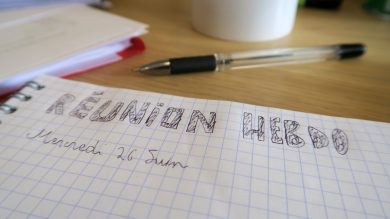 RÉUNION HEBDO
Mercredi 26 Juin